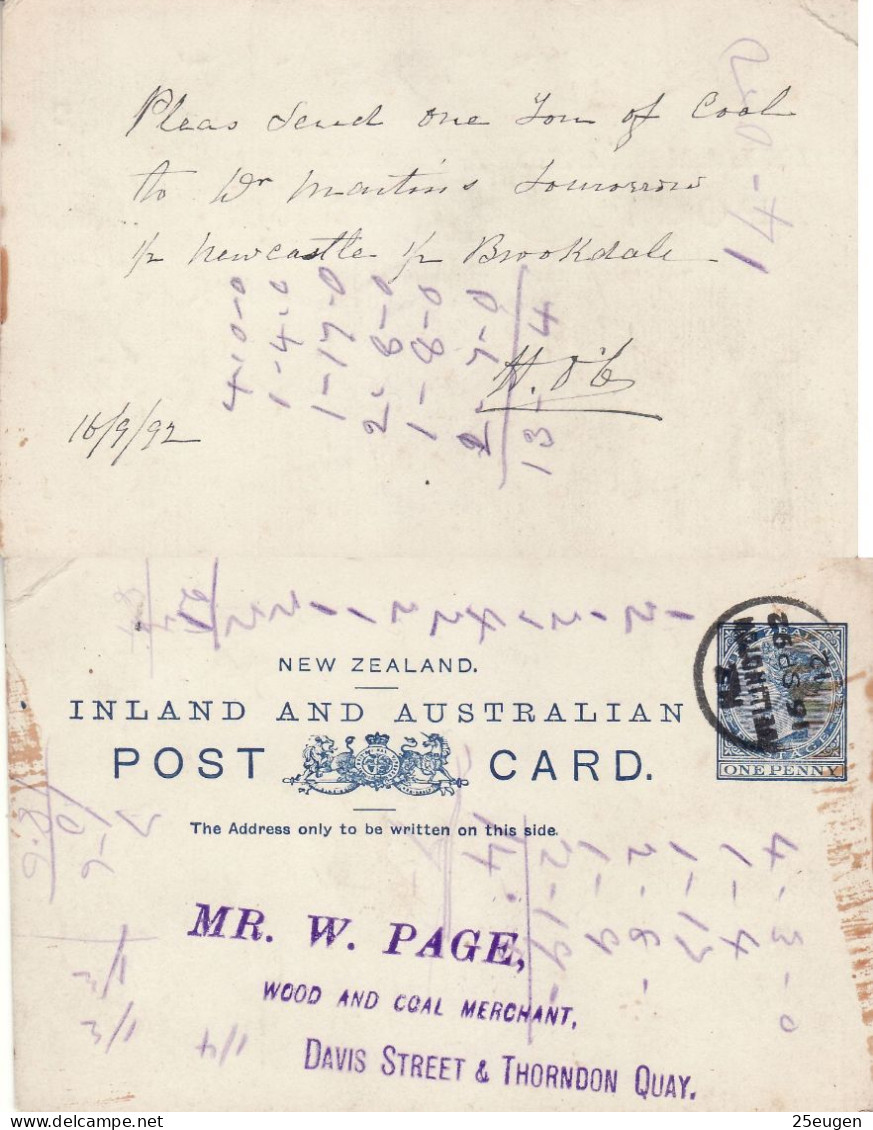 Pleas Send one Ton of Coal
to Dr Martins Tomorrow
1/2 Newcastle 1/2 Brookdale
H. O'C
16/9/92
4-0-0
1-4-0
1-17-0
2-8-0
1-8-0
2-7-0
13-4
NEW ZEALAND.
INLAND AND AUSTRALIAN
POST CARD.
The Address only to be written on this side.
NZ
WELLINGTON
SP 92
12
ONE PENNY
MR. W. PAGE,
WOOD AND COAL MERCHANT,
DAVIS STREET & THORNDON QUAY.
4-3-0
1-4
1-17
1/4
25eugen